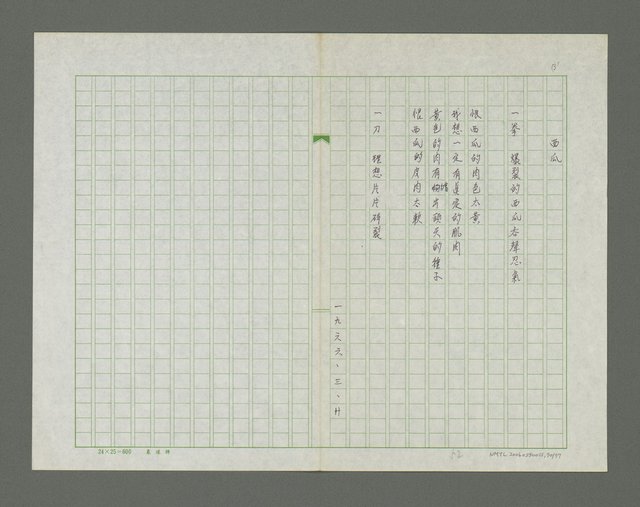 B'
西瓜
一拳　爆裂的西瓜吞聲忍氣
恨西瓜的肉色太黃
我想一定有蓬是的肌肉
黃色的肉有昂頭天的種子
但西瓜的皮肉太軟
一刀　理想片片碎裂
一九六六、三、廿
24×25=600
52